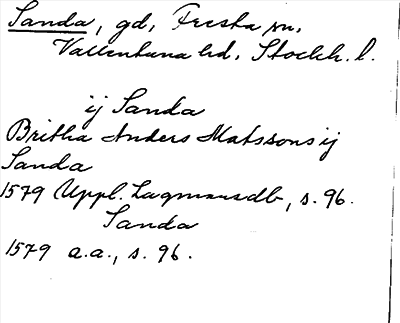 Sanda, gd, Fresta sn,
Vallentuna hd, Stockh. l.
ij Sanda
Britha Anders Matssons ij
Sanda
1579 Uppl. Lagmansdb, s. 96.
Sanda
1579 a.a., s. 96.